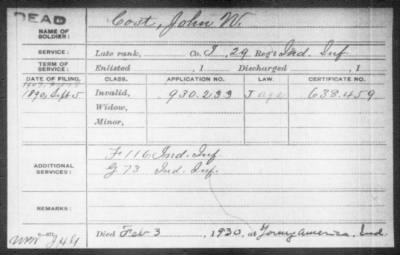 DEAD
NAME OF SOLDIER: Cost, John W.
SERVICE: Late rank, Co. I, 29 Reg't Ind. Inf
TERM OF SERVICE: Enlisted , 1 Discharged , 1
DATE OF FILING. CLASS. APPLICATION NO. LAW. CERTIFICATE NO.
1890, Sept 5 Invalid, 930.233 638.459
Widow,
Minor,
ADDITIONAL SERVICES: F 116 Ind. Inf
G 73 Ind. Inf.
REMARKS:
Died Feb 3, 1930, at Young America, Ind.